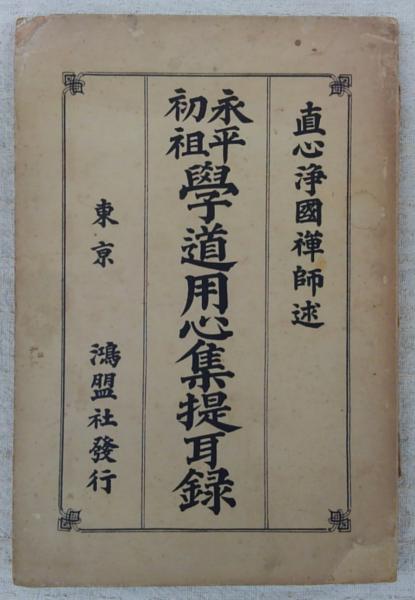 直心淨國禪師述
永平
初祖
學道用心集提耳録
東京
鴻盟社發行